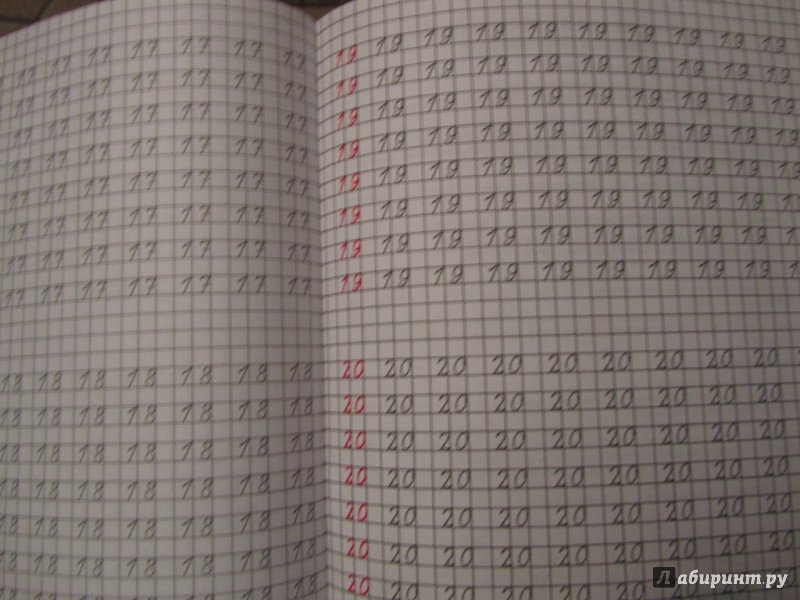 17 17 17 17 17 17 17
17 17 17 17 17 17 17
17 17 17 17 17 17 17
17 17 17 17 17 17 17
17 17 17 17 17 17 17
17 17 17 17 17 17 17
17 17 17 17 17 17 17
17 17 17 17 17 17 17
18 18 18 18 18 18 18
18 18 18 18 18 18 18
18 18 18 18 18 18 18
18 18 18 18 18 18 18
18 18 18 18 18 18 18
18 18 18 18 18 18 18
18 18 18 18 18 18 18
19 19 19 19 19 19 19 19 19 19
19 19 19 19 19 19 19 19 19 19
19 19 19 19 19 19 19 19 19 19
19 19 19 19 19 19 19 19 19 19
19 19 19 19 19 19 19 19 19 19
19 19 19 19 19 19 19 19 19
19 19 19 19 19 19 19 19 19
19 19 19 19 19 19 19 19 19
20 20 20 20 20 20 20 20 20
20 20 20 20 20 20 20 20 20
20 20 20 20 20 20 20 20 20
20 20 20 20 20 20 20 20 20
20 20 20 20 20 20 20 20 20
20 20 20 20 20 20 20 20 20
20 20 20 20 20 20
Лабиринт.ру